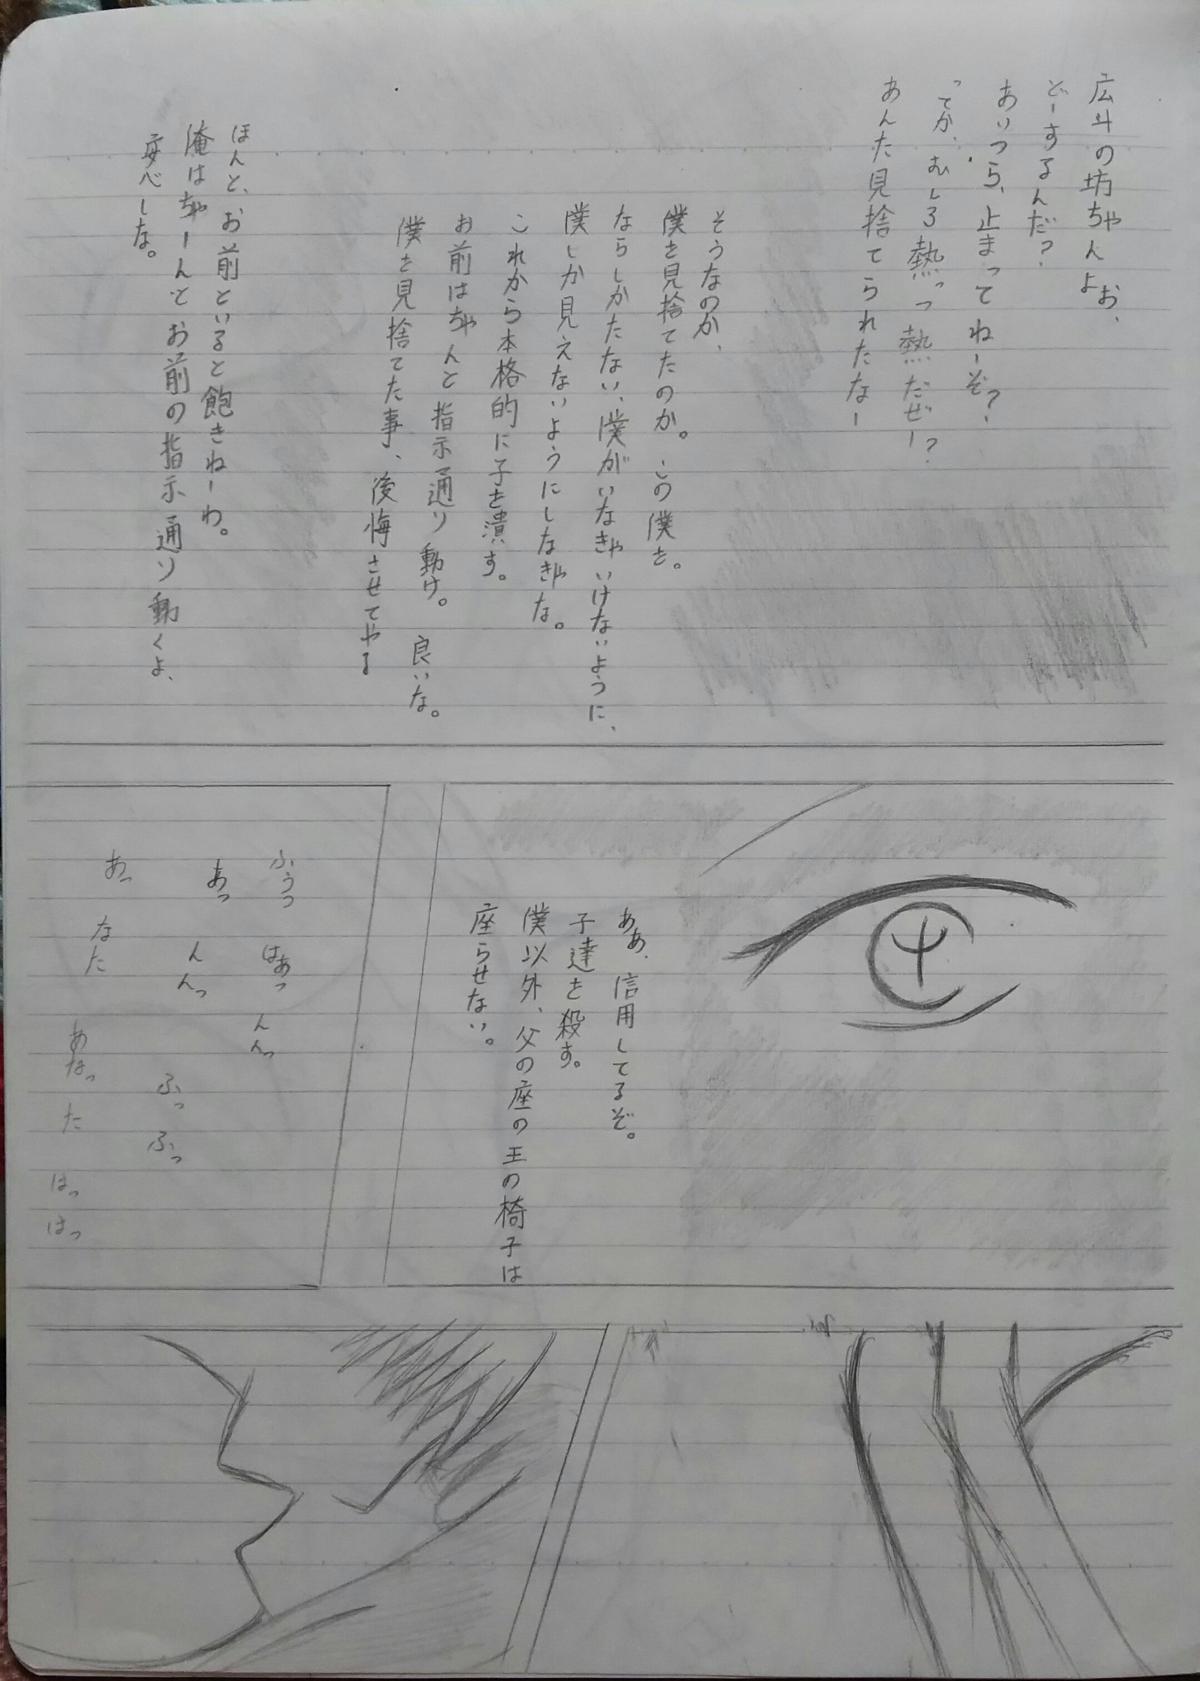 広斗の坊ちゃんよお、
どーするんだ?
あいつら、止まってねーぞ?
ってか、むしろ熱っつ熱だぜー?
あんた見捨てられたなー
そうなのか、
僕を見捨てたのか。この僕を。
ならしかたない、僕がいなきゃいけないように、
僕しか見えないようにしなきゃな。
これから本格的に子を潰す。
お前はちゃんと指示通り動け。良いな。
僕を見捨てた事、後悔させてやる
ほんと、お前といると飽きねーわ。
俺はちゃーんとお前の指示通り動くよ、
安心しな。
ああ、信用してるぞ。
子達を殺す。
僕以外、父の座の王の椅子は
座らせない。
ふうっ はあっ んんっ
あっ んんっ ふっ ふっ
あっ なた あなっ た はっ はっ